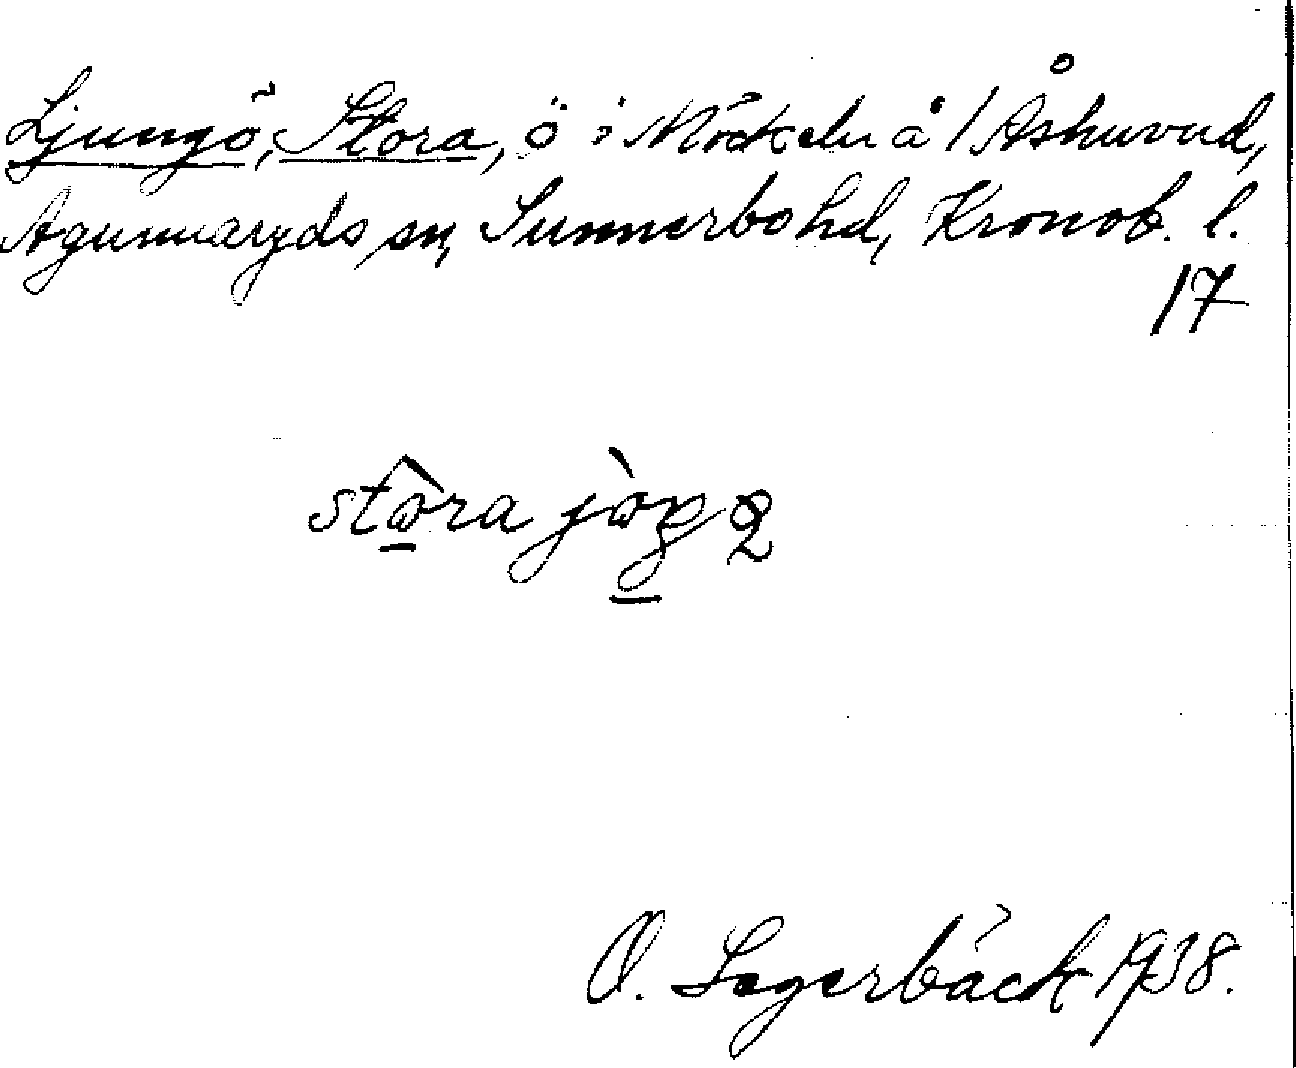 Ljungö, Stora, ö i Möckeln å / Åshuvud,
Agunnaryds sn, Sunnerbo hd, Kronob. l.
17
stora
O. Lagerbäck 1938.